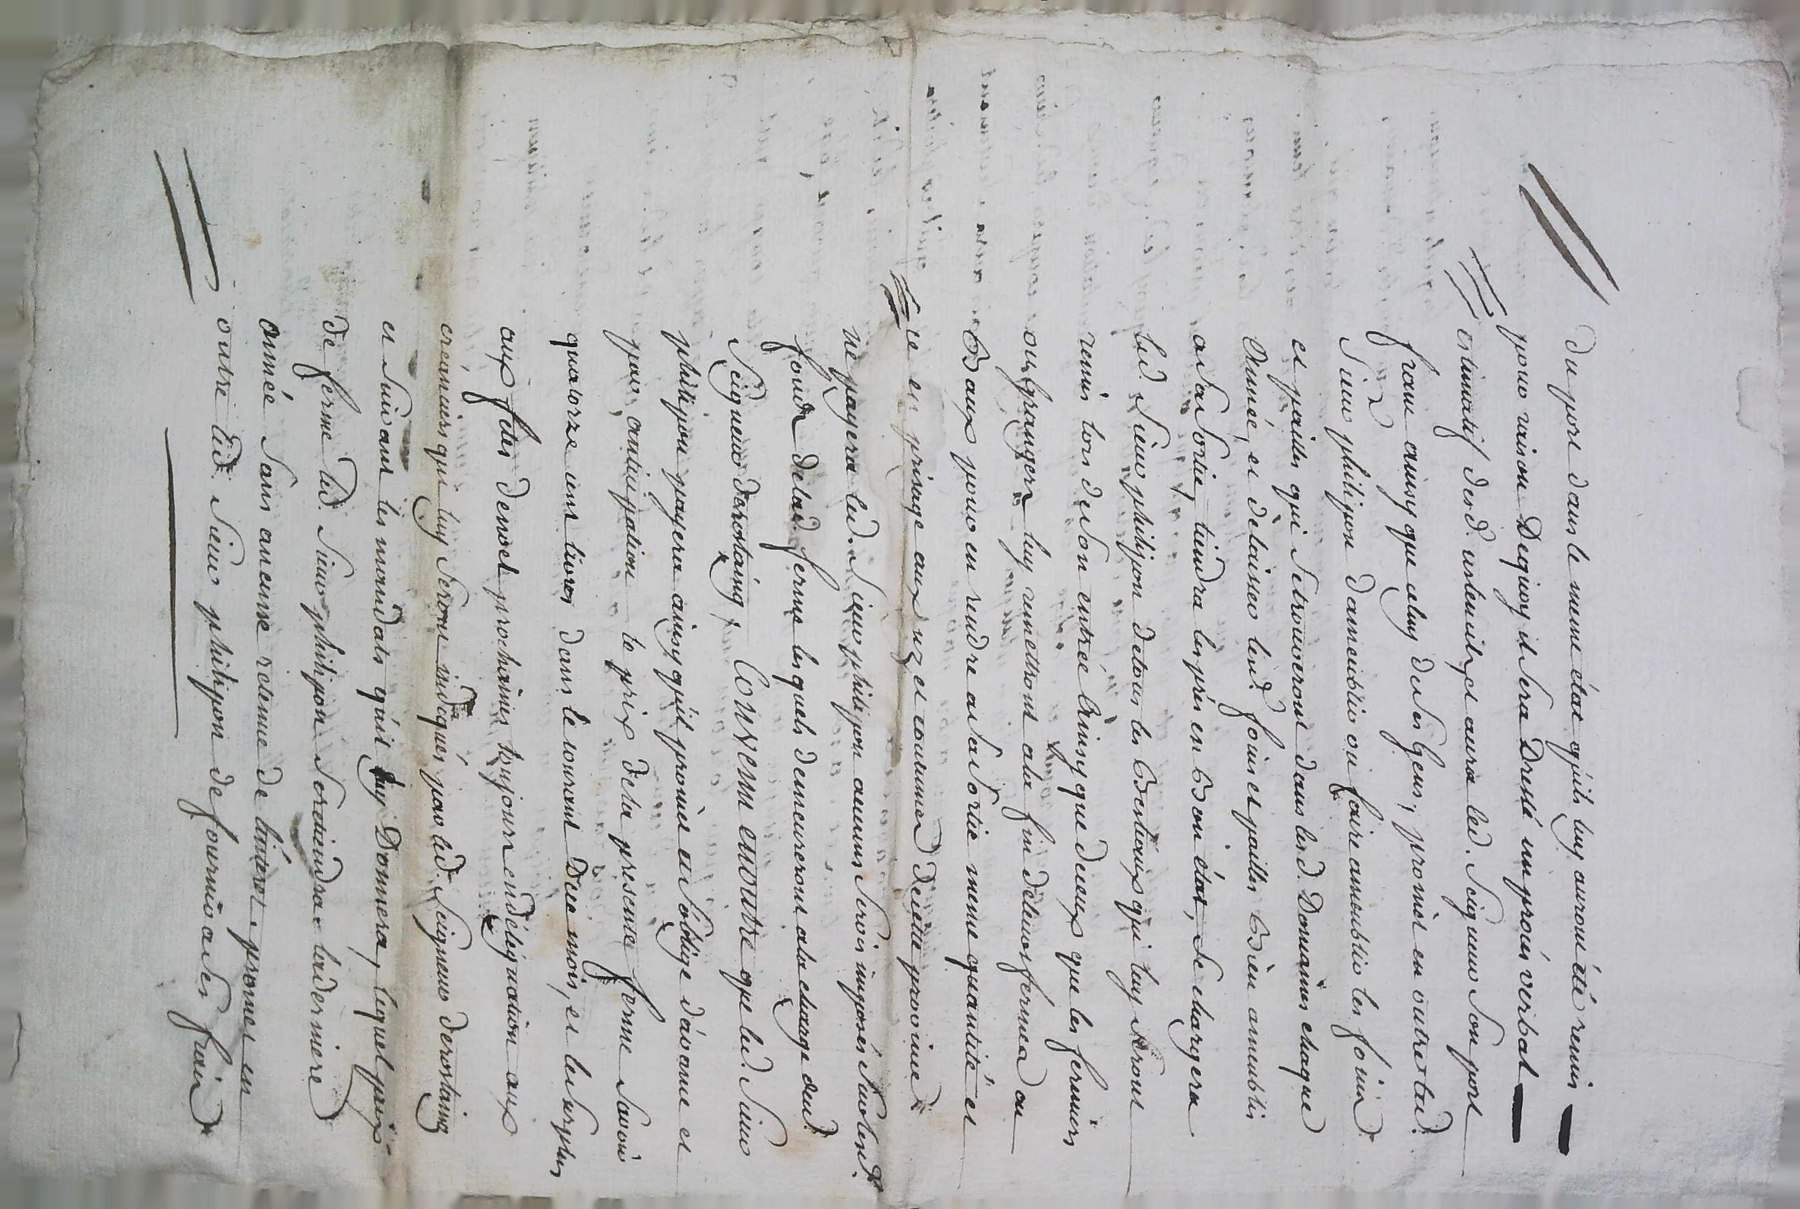 du port dans le meme état qu'ils luy auront été remis
pour raison Dequoy il sera Dressé un procés verbal
estimatif desd. ustencils, et aura led. Seigneur son port
franc ainsy que celuy de ses gens, promet en outre led.
Sieur philipon d'ameublir ou faire ameublir les foins
et pailles qui se trouveront dans lesd. Domaines chaque
Année, et delaisser lesd. foins et pailles Bien ameublis
a sa sortie, tiendra les prés en Bon état, se chargera
led. Sieur philipon de tous les Bestiaux qui luy seront
remis lors de son entrée Ainsy que de ceux que les fermiers
ou grangers luy remettront a la fin de leurs fermes ou
Baux pour en rendre a sa sortie meme quantité et
ce en prisage aux uz et coutumes De cette province
ne payera led. Sieur philipon aucuns servis imposés sur lesd.
fonds de lad. ferme lesquels demeureront a la charge dud.
Seigneur derostaing, Convenu en outre que led. Sieur
philipon payera ainsy qu'il promet et s'oblige d'avance et
par anticipation le prix de la presente ferme Savoir
quatorze cent livres dans le courant De ce mois, et le surplus
aux fetes de noel prochaines toujours en délégation aux
creanciers qui luy seront indiqués par led. Seigneur derostaing
et suivant les mandats qu'il luy Donnera, lequel prix
de ferme led. Sieur philipon retiendra la derniere
année sans aucune retenue de promet en
outre led. Sieur philipon de fournir a ses frais